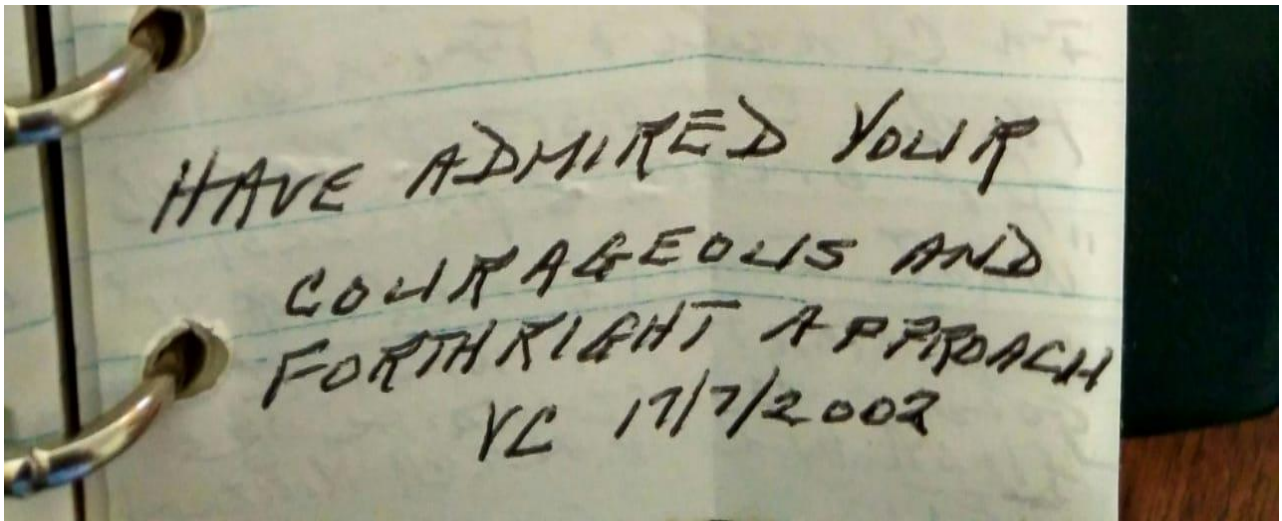 HAVE ADMIRED YOUR
COURAGEOUS AND
FORTHRIGHT APPROACH
VC 17/7/2002